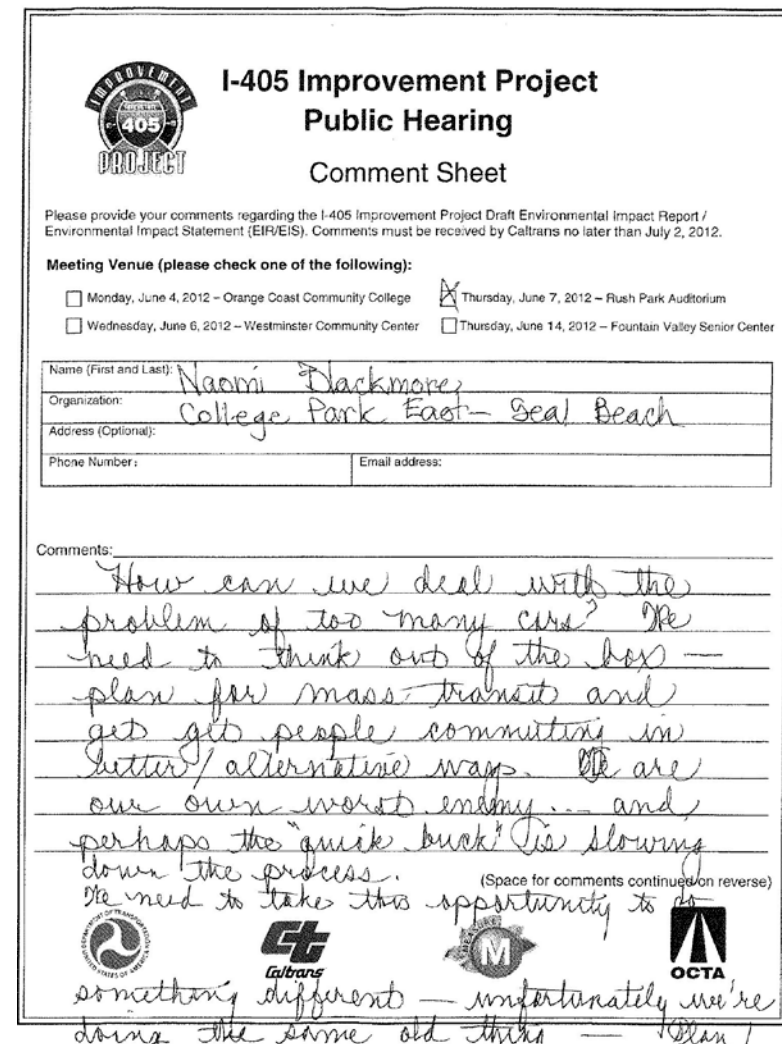 IMPROVEMENT
405
PROJECT
I-405 Improvement Project
Public Hearing
Comment Sheet
Please provide your comments regarding the I-405 Improvement Project Draft Environmental Impact Report /
Environmental Impact Statement (EIR/EIS). Comments must be received by Caltrans no later than July 2, 2012.
Meeting Venue (please check one of the following):
Monday, June 4, 2012 – Orange Coast Community College
Thursday, June 7, 2012 – Rush Park Auditorium
Wednesday, June 6, 2012 – Westminster Community Center
Thursday, June 14, 2012 – Fountain Valley Senior Center
Name (First and Last): Naomi Blackmore
Organization: College Park East – Seal Beach
Address (Optional):
Phone Number:
Email address:
Comments:
How can we deal with the
problem of too many cars? We
need to think out of the box —
plan for mass-transit and
get get people commuting in
better/alternative ways. We are
our own worst enemy... and
perhaps the "quick buck" is slowing
down the process.
(Space for comments continued on reverse)
We need to take this opportunity to do
DEPARTMENT OF TRANSPORTATION
UNITED STATES OF AMERICA
ct
Caltrans
MEASURE
M
OCTA
something different — unfortunately we're
doing the same old thing — Plan